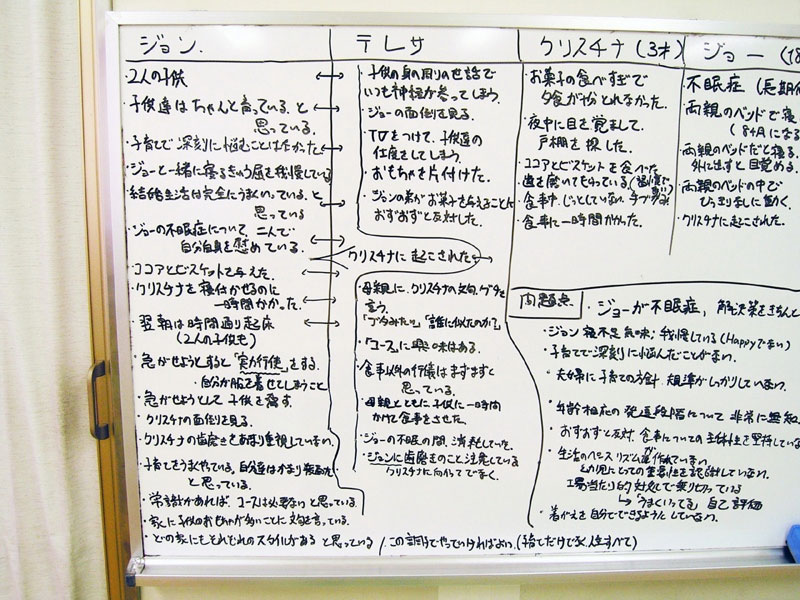 ジョン.
・2人の子供
・子供達はちゃんと育っている。と
思っている。
・子育てで深刻に悩むことはなかった
・ジョーと一緒に寝るきゅう屈を我慢している
・結婚生活は完全にうまくいっている。と
思っている
・ジョーの不眠症について、二人で
自分自身を慰めている。
・ココアとビスケットを与えた。
・クリスチナを寝付かせるのに
一時間かかった.
・翌朝は時間通り起床
(2人の子供も)
・急がせようとすると「実力行使」をする.
自分が服を着せてしまうこと
・急がせようとして子供を脅す.
・クリスチナの面倒を見る.
・クリスチナの歯磨きをあまり重視していない.
・子育てをうまくやっている,自分達はかなり
と思っている.
・常識があれば、コースは必要ないと思っている.
・家に子供のおもちゃが多いことに文句を言っている.
・どの家にもそれぞれのスタイルがあると思っている / この調子でやっていければよい.(捨てだけでなく人生すべて)
テレサ
・子供の身の周りの世話で
いつも神経が参ってしまう.
・ジョーの面倒を見る.
・TVをつけて、子供達の
仕度をしてしまう.
・おもちゃを片付けた.
・ジョンの弟がお菓子を与えることに
おずおずと反対した.
クリスチナに起こされた
・母親に、クリスチナの文句、グチを
言う.
「ブタみたい」「誰に似たのか?」
・「コース」に興味はある.
・食事以外の行儀はまずまずと
思っている.
・母親とともに子供に一時間
かけて食事をさせた.
・ジョーの不眠の間、消耗していた.
・ジョンに歯磨きのこと注意している
クリスチナに向かってでなく.
クリスチナ(3才)
・お菓子の食べすぎで
夕食が十分とれなかった.
・夜中に目を覚まして.
戸棚を探した.
・ココアとビスケットを食べた
・歯を磨いてもらっている
・食事中、じっとしていない.
・食事に一時間かかった.
ジョー(18
・不眠症(長期
・両親のベッドで寝
(8ヶ月になる
・両親のベッドだと寝る.
外に出すと目覚める.
・両親のベッドの中で
ひっきりなしに動く.
・クリスチナに起こされた.
問題点
・ジョーが不眠症, 解決策をきちんと
・ジョン 寝不足気味: 我慢している(Happyでない)
・子育てで深刻に悩んだことがない.
・夫婦に子育ての方針、規準がしっかりしていない.
・年齢相応の発達段階について 非常に無知
・おずおずと反対. 食事についての主体性を堅持していな
・生活のベース リズムが作れていない
幼児にとっての重要性を認識していない.
・場当たり的対処で乗り切っている
↳「うまくいってる」自己評価
・着がえを自分でできるようにしていない.